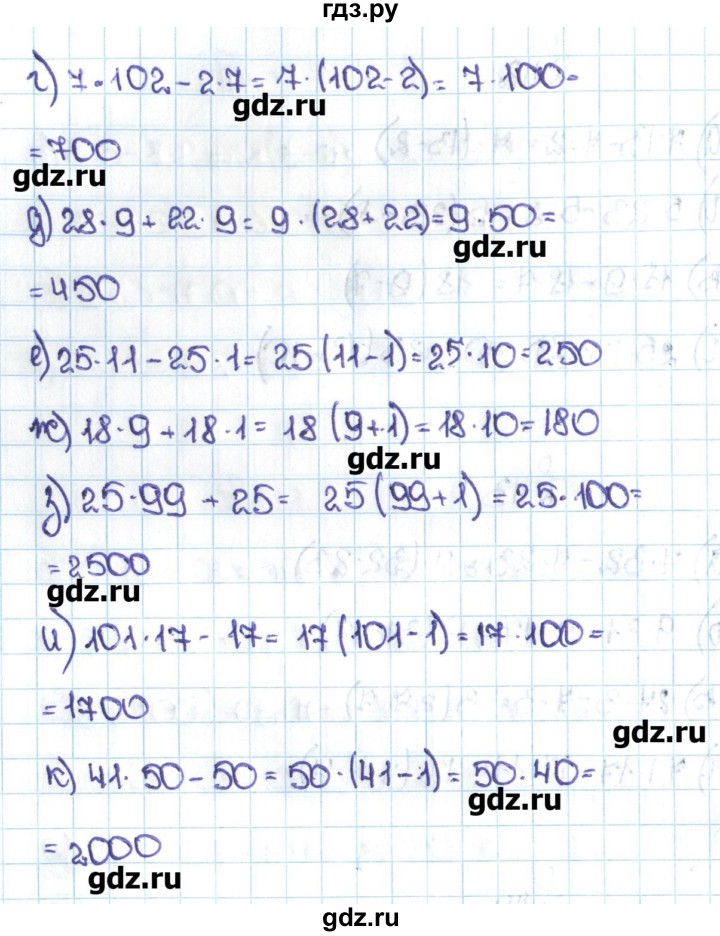 гдз.ру
г) 7·102-2·7=7·(102-2)=7·100=
gdz.ru
=700
gdz.ru
д) 28·9+22·9=9·(28+22)=9·50=
gdz.ru
=450
е) 25·11-25·1=25(11-1)=25·10=250
ж) 18·9+18·1=18(9+1)=18·10=180
gdz.ru
з) 25·99+25=25(99+1)=25·100=
=2500
gdz.ru
и) 101·17-17=17(101-1)=17·100=
=1700
gdz.ru
к) 41·50-50=50·(41-1)=50·40=
gdz.ru
=2000
gdz.ru
gdz.ru